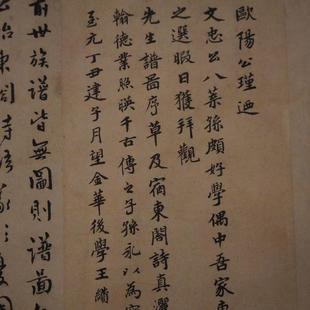 歐陽公瑾迺
文忠公八葉孫頗好學偶中吾家東
之選暇日獲拜觀
先生譜啚序草及宿東閣詩真灑
翰德業照暎千古傳之子孫永以為
至元丁丑建子月望金華後學王
前世族譜皆無圖則譜圖
東閣詩